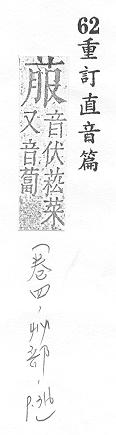 62重訂直音篇
菔音伏菘菜
又音蔔
(卷四,艸部,p.316)